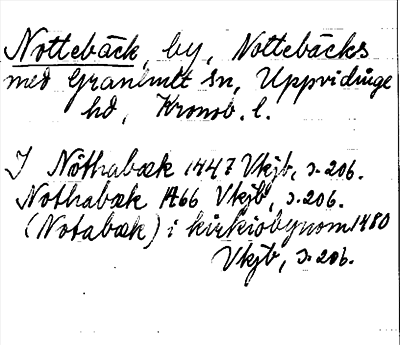 Nottebäck, by, Nottebäcks
med Granhult sn, Uppvidinge
hd, Kronob. l.
I Nöthabæk 1447 Vkjb, s. 206.
Nothabæk 1466 Vkjb, s. 206.
(Notabæk) i kirkiobynom 1480
Vkjb, s. 206.